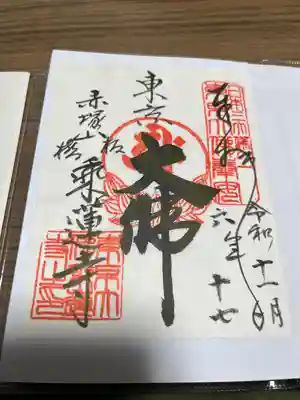 奉拝
令和六年
十一月十七日
大佛
東京
板橋
赤塚山
乗蓮寺